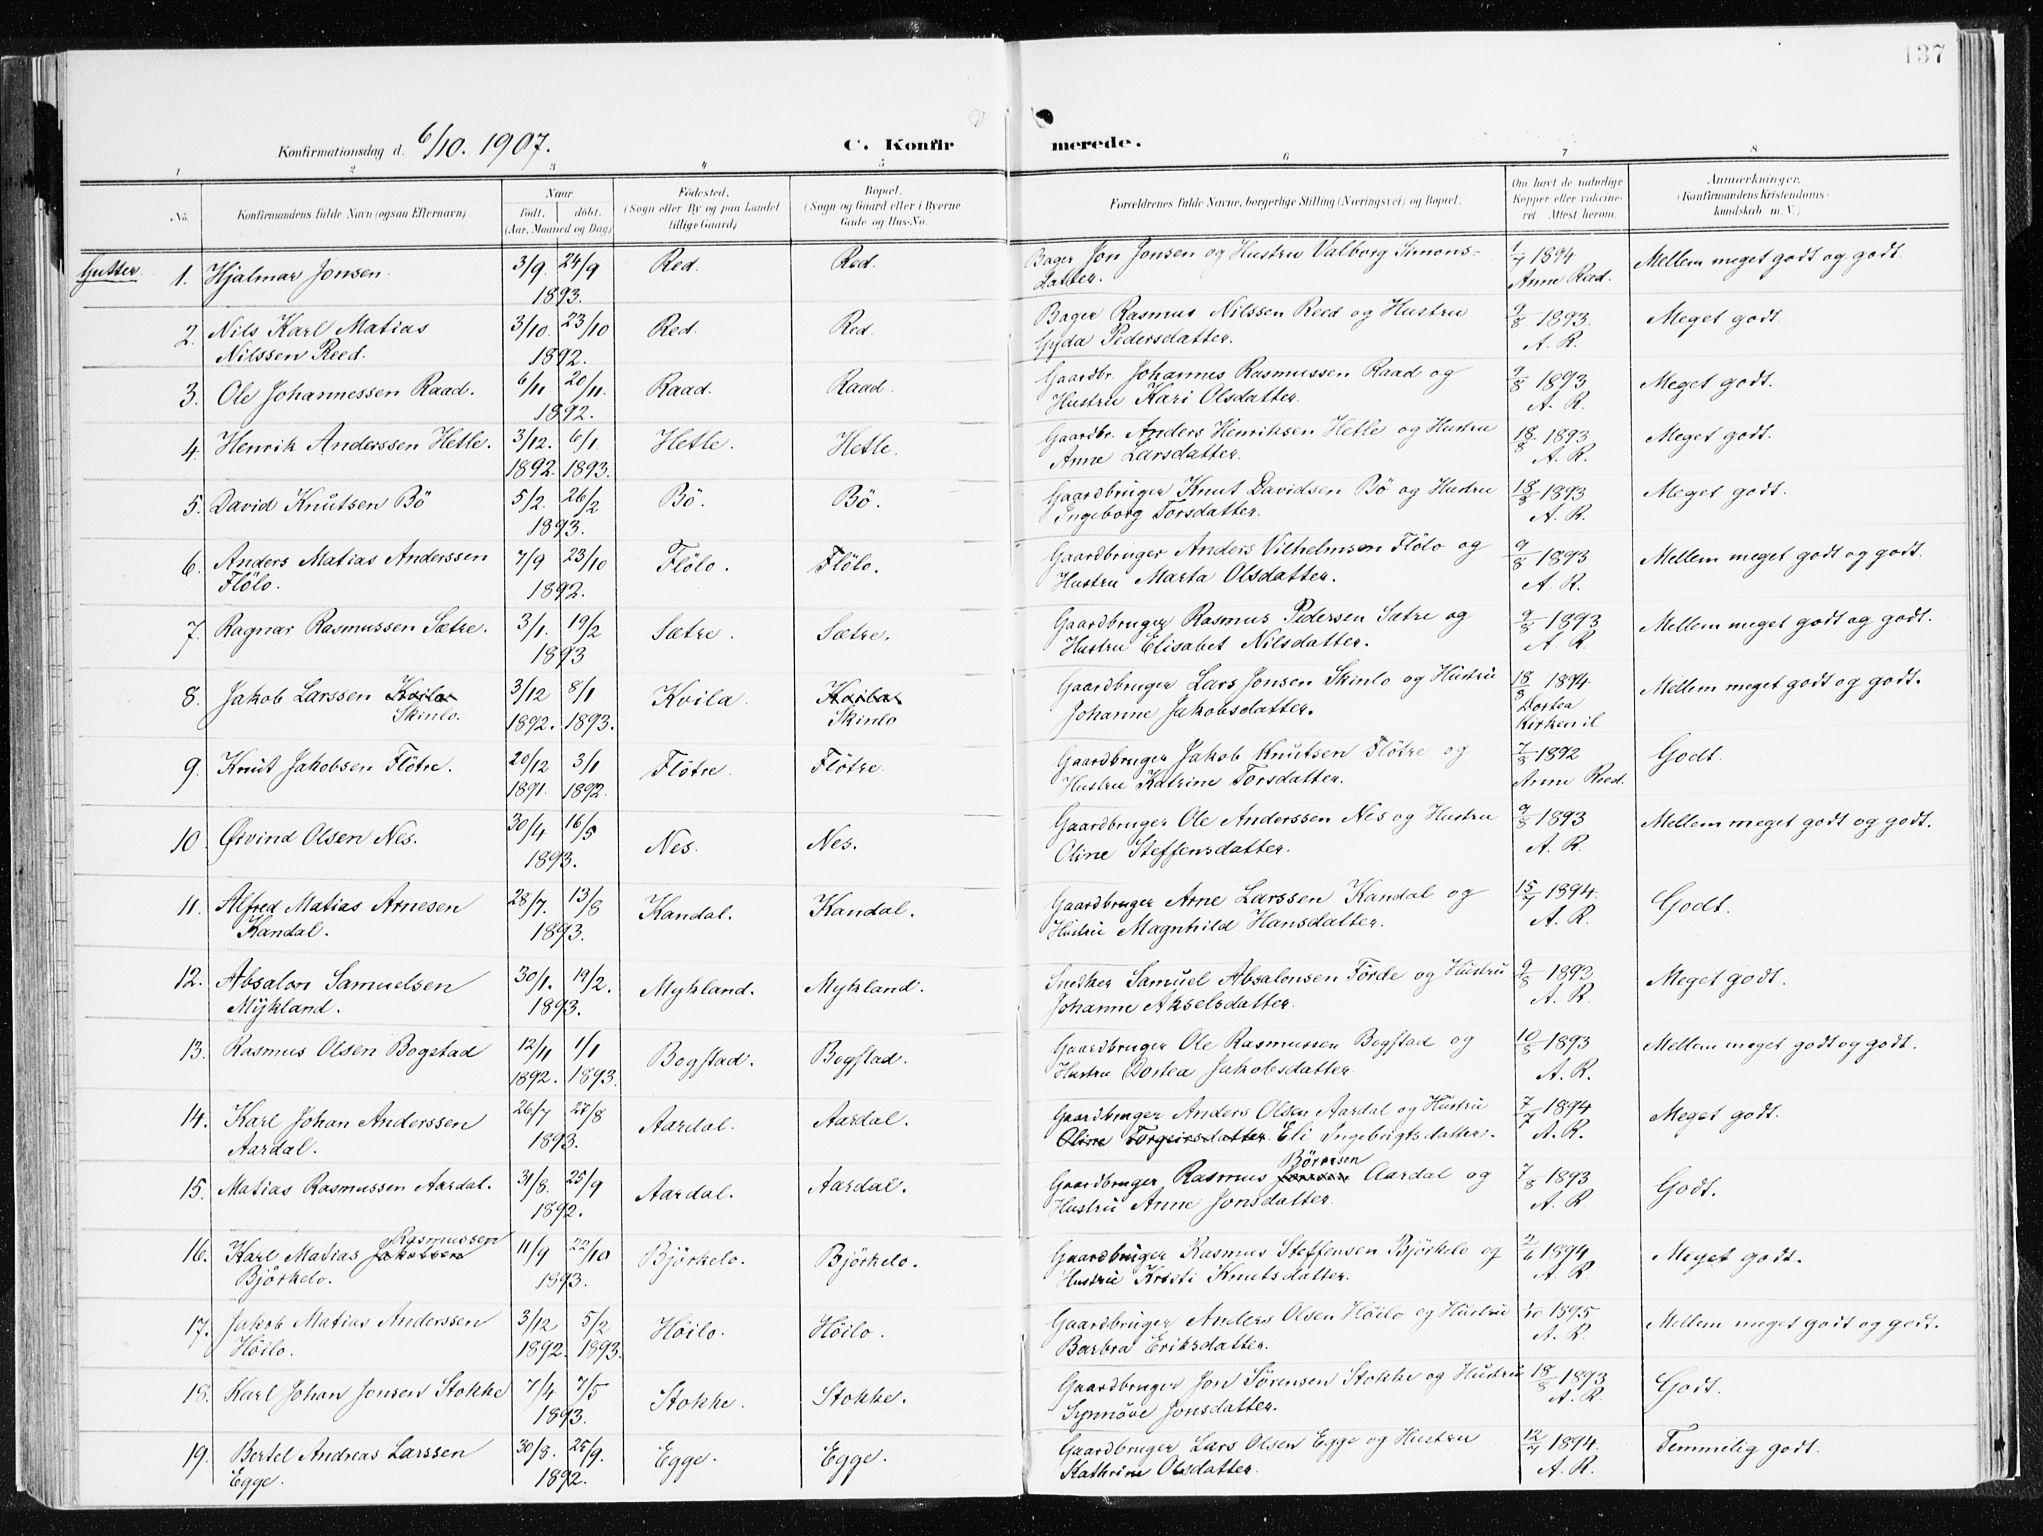 137
Konfirmationsdag d. 6/10. 1907.
C. Konfirmerede.
1 2 3 4 5 6 7 8
No. Konfirmandens fulde Navn (ogsaa Efternavn) Naar født, døbt. (Aar, Maaned og Dag) Fødested. (Sogn eller By og paa Landet tillige Gaard) Bopæl. (Sogn og Gaard eller i Byerne Gade og Hus-No. Forældrenes fulde Navne, borgerlige Stilling (Næringsvei) og Bopæl. Om havt de naturlige Kopper eller vakcineret. Attest herom. Anmærkninger. (Konfirmandens Kristendomskundskab m. V.)
Gutter. 1. Hjalmar Jonsen 3/9. 24/9 1893. Red. Red. Bager Jon Jonsen og Hustru Valborg Simonsdatter. 1/7 1894 Anne Reed. Mellem meget godt og godt.
2. Nils Karl Matias Nilssen Reed. 3/10. 23/10 1892. Red. Red. Bager Rasmus Nilssen Reed og Hustru Gyda Pedersdatter. 9/8 1893. A. R. Meget godt.
3. Ole Johannessen Raad. 6/11 20/11. 1892. Raad. Raad. Gaardbr. Johannes Rasmussen Raad og Hustru Kari Olsdatter. 9/8 1893 A. R. Meget godt.
4. Henrik Anderssen Hetle. 3/12. 1892. 6/1 1893. Hetle. Hetle. Gaardbr. Anders Henriksen Hetle og Hustru Anne Larsdatter. 18/8 1893 A. R. Meget godt.
5. David Knutsen Bö 5/2. 26/2 1893. Bö. Bö. Gaardbruger Knut Davidsen Bö og Hustru Ingeborg Torsdatter. 18/8 1893 A. R. Meget godt.
6. Anders Matias Anderssen Flölo. 7/9 23/10 1892. Flölo. Flölo. Gaardbruger Anders Vilhelmsen Flölo og Hustru Marta Olsdatter. 9/8 1893 A. R. Mellem meget godt og godt.
7. Ragnar Rasmussen Sætre. 3/1. 19/2 1893 Sætre. Sætre. Gaardbruger Rasmus Pedersen Sætre og Hustru Elisabet Nilsdatter. 9/8 1893 A. R. Mellem meget godt og godt.
8. Jakob Larssen Kvila Skinlo. 3/12 1892. 8/1 1893. Kvila. Kvila. Skinlo Gaardbruger Lars Jonsen Skinlo og Hustru Johanne Jakobsdatter. 18/8 1894 Dortea Mellem meget godt og godt.
9. Knut Jakobsen Flötre. 20/12 1891. 3/1 1892. Flötre. Flötre. Gaardbruger Jakob Knutsen Flötre og Hustru Katrine Torsdatter. 7/8 1892 Anne Reed. Godt.
10. Øivind Olsen Nes. 30/4 16/5 1893. Nes. Nes. Gaardbruger Ole Anderssen Nes og Hustru Oline Steffensdatter. 9/8 1893 A. R. Mellem meget godt og godt.
11. Alfred Matias Arnesen Kandal. 28/7. 13/8 1893. Kandal. Kandal. Gaardbruger Arne Larssen Kandal og Hustru Magnhild Hansdatter. 15/7 1894. A. R. Godt.
12. Absalon Samuelsen Mykland. 30/1. 19/2. 1893. Mykland. Mykland. Snedker Samuel Absalonsen Förde og Hustru Johanne Akselsdatter. 9/8 1893 A. R. Meget godt.
13. Rasmus Olsen Bogstad 12/11 1892. 1/1 1893. Bogstad. Bogstad. Gaardbruger Ole Rasmussen Bogstad og Hustru Dortea Jakobsdatter. 10/8 1893 A. R. Mellem meget godt og godt.
14. Karl Johan Anderssen Aardal. 26/7 27/8 1893. Aardal. Aardal. Gaardbruger Anders Olsen Aardal og Hustru Oline Torgeirsdatter. Eli Ingebrigtsdatter. 7/7 1894 A. R. Meget godt.
15. Matias Rasmussen Aardal. 31/8. 25/9 1892. Aardal. Aardal. Gaardbruger Rasmus Börresen Aardal og Hustru Anne Jonsdatter. 7/8 1893 A. R. Godt.
16. Karl Matias Jakobsen Rasmussen Björkelo. 11/9 22/10 1893. Björkelo. Björkelo. Gaardbruger Rasmus Steffensen Björkelo og Hustru Kristi Knutsdatter. 2/6 1894 A. R. Meget godt.
17. Jakob Matias Anderssen Höilo. 3/12 1892. 5/2 1893. Höilo. Höilo. Gaardbruger Anders Olsen Höilo og Hustru Barbra Eriksdatter. 1/10 1895 A. R. Mellem meget godt og godt.
18. Karl Johan Jonsen Stokke 7/4 7/5 1893. Stokke. Stokke. Gaardbruger Jon Sörensen Stokke og Hustru Synnöve Jonsdatter. 18/8 1893 A. R. Godt.
19. Bertel Andreas Larssen Egge. 30/8. 25/9. 1892. Egge. Egge. Gaardbruger Lars Olsen Egge og Hustru Kathrine Olsdatter. 12/7 1894. A. R. Temmelig godt.